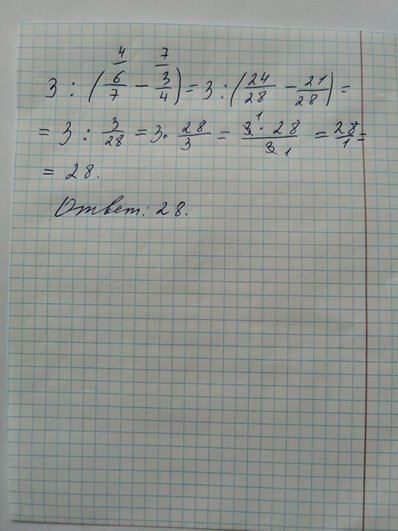 3 : (4/ 6/7 − 7/ 3/4) = 3 : (24/28 − 21/28) =
= 3 : 3/28 = 3 · 28/3 = 3 1 · 28 / 3 1 = 28/1 =
= 28.
Ответ: 28.